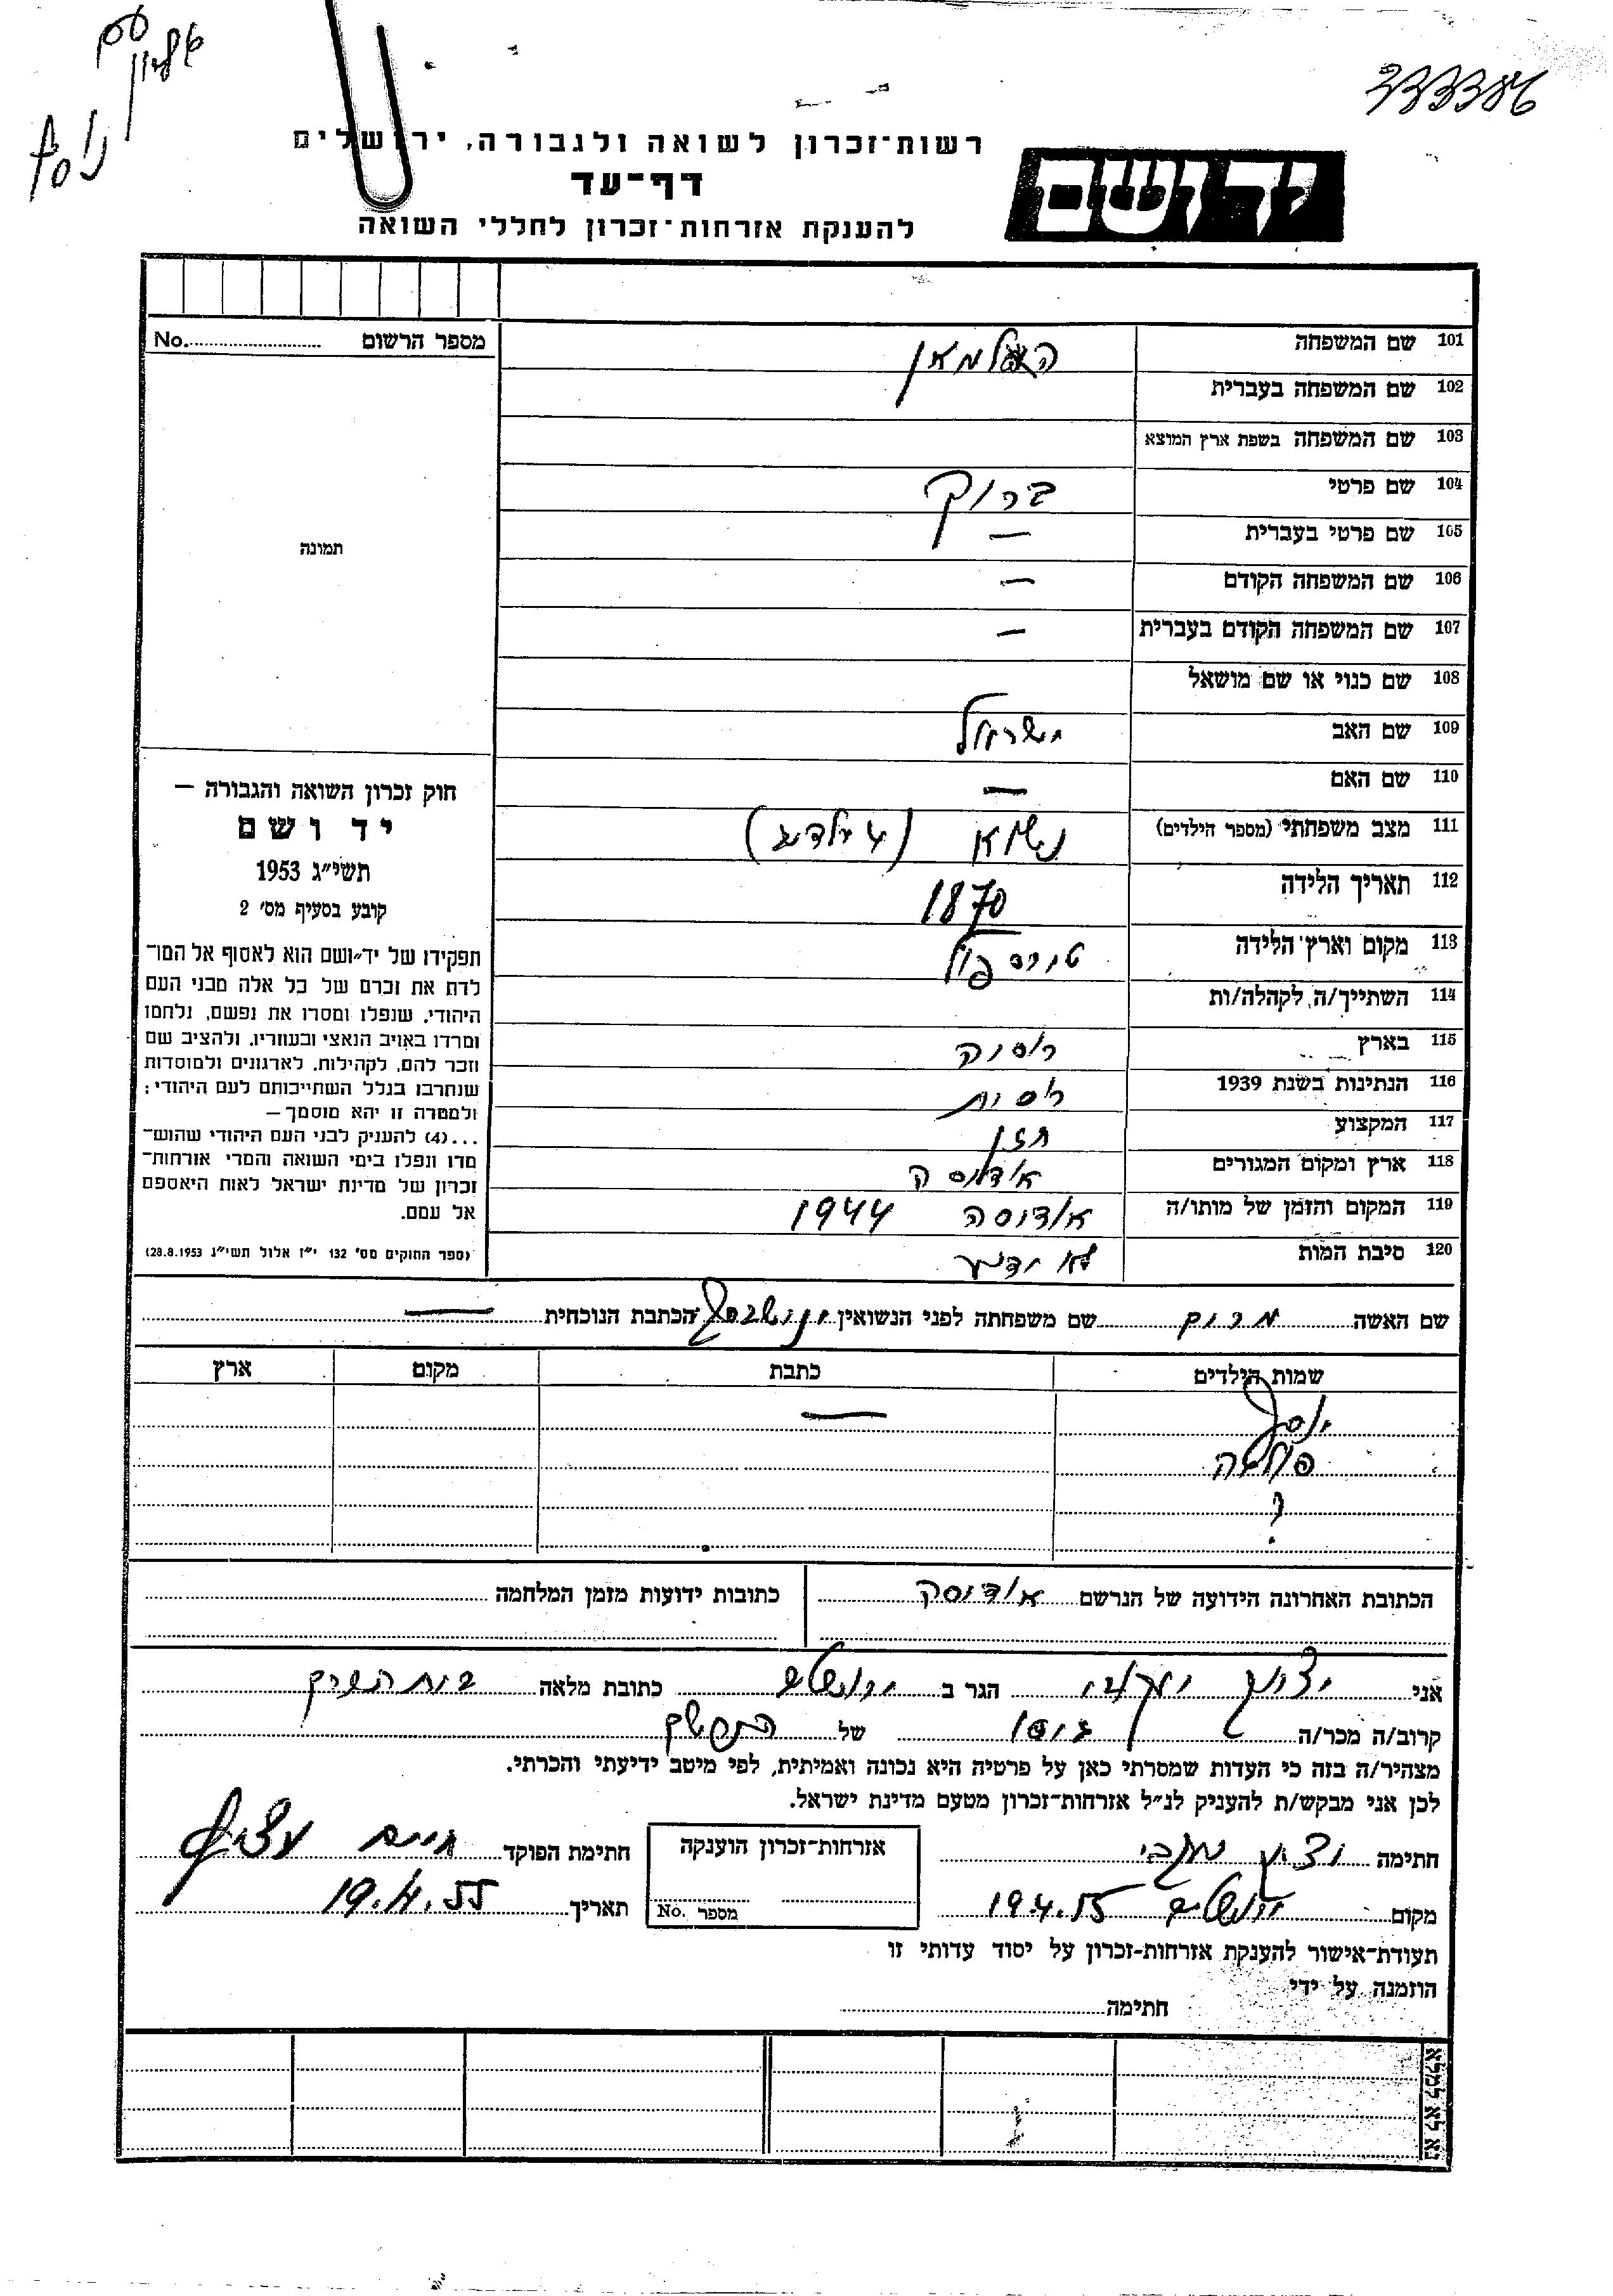 נוסף
333386
רשות־זכרון לשואה ולגבורה, ירושלים
יד ושם
דף־עד
להענקת אזרחות־זכרון לחללי השואה
מספר הרשום No.
תמונה
101 שם המשפחה
102 שם המשפחה בעברית
103 שם המשפחה בשפת ארץ המוצא
104 שם פרטי ברוך
105 שם פרטי בעברית —
106 שם המשפחה הקודם —
107 שם המשפחה הקודם בעברית —
108 שם כנוי או שם מושאל
109 שם האב ישראל
110 שם האם —
111 מצב משפחתי (מספר הילדים) נשוא (4 ילדים)
112 תאריך הלידה 1870
113 מקום וארץ הלידה
114 השתייך/ה לקהלה/ות
115 בארץ רוסיה
116 הנתינות בשנת 1939 רוסית
117 המקצוע חזן
118 ארץ ומקום המגורים אודוסה
119 המקום והזמן של מותו/ה אודוסה 1944
120 סיבת המות לא ידוע
חוק זכרון השואה והגבורה —
יד ושם
תשי״ג 1953
קובע בסעיף מס׳ 2
תפקידו של יד־ושם הוא לאסוף אל המו־
לדת את זכרם של כל אלה מבני העם
היהודי, שנפלו ומסרו את נפשם, נלחמו
ומרדו באויב הנאצי ובעוזריו, ולהציב שם
וזכר להם, לקהילות, לארגונים ולמוסדות
שנחרבו בגלל השתייכותם לעם היהודי;
ולמטרה זו יהא מוסמך —
...(4) להעניק לבני העם היהודי שהוש־
מדו ונפלו בימי השואה והמרי אזרחות־
זכרון של מדינת ישראל לאות היאספם
אל עמם.
(ספר החוקים מס׳ 132 י״ז אלול תשי״ג 28.8.1953)
שם האשה מרים שם משפחתה לפני הנשואין הכתבת הנוכחית —
שמות הילדים כתבת מקום ארץ
יוסף —
?
הכתובת האחרונה הידועה של הנרשם אודוסה כתובות ידועות מזמן המלחמה
אני יצחק הגר ב ירושלים כתובת מלאה
קרוב/ה מכר/ה של
מצהיר/ה בזה כי העדות שמסרתי כאן על פרטיה היא נכונה ואמיתית, לפי מיטב ידיעתי והכרתי.
לכן אני מבקש/ת להעניק לנ״ל אזרחות־זכרון מטעם מדינת ישראל.
חתימה יצחק אזרחות־זכרון הוענקה חתימת הפוקד חיים
מקום ירושלים 19.4.55 מספר No. תאריך 19.4.55
תעודת־אישור להענקת אזרחות־זכרון על יסוד עדותי זו
הוזמנה על ידי
חתימה
נא לא למלא